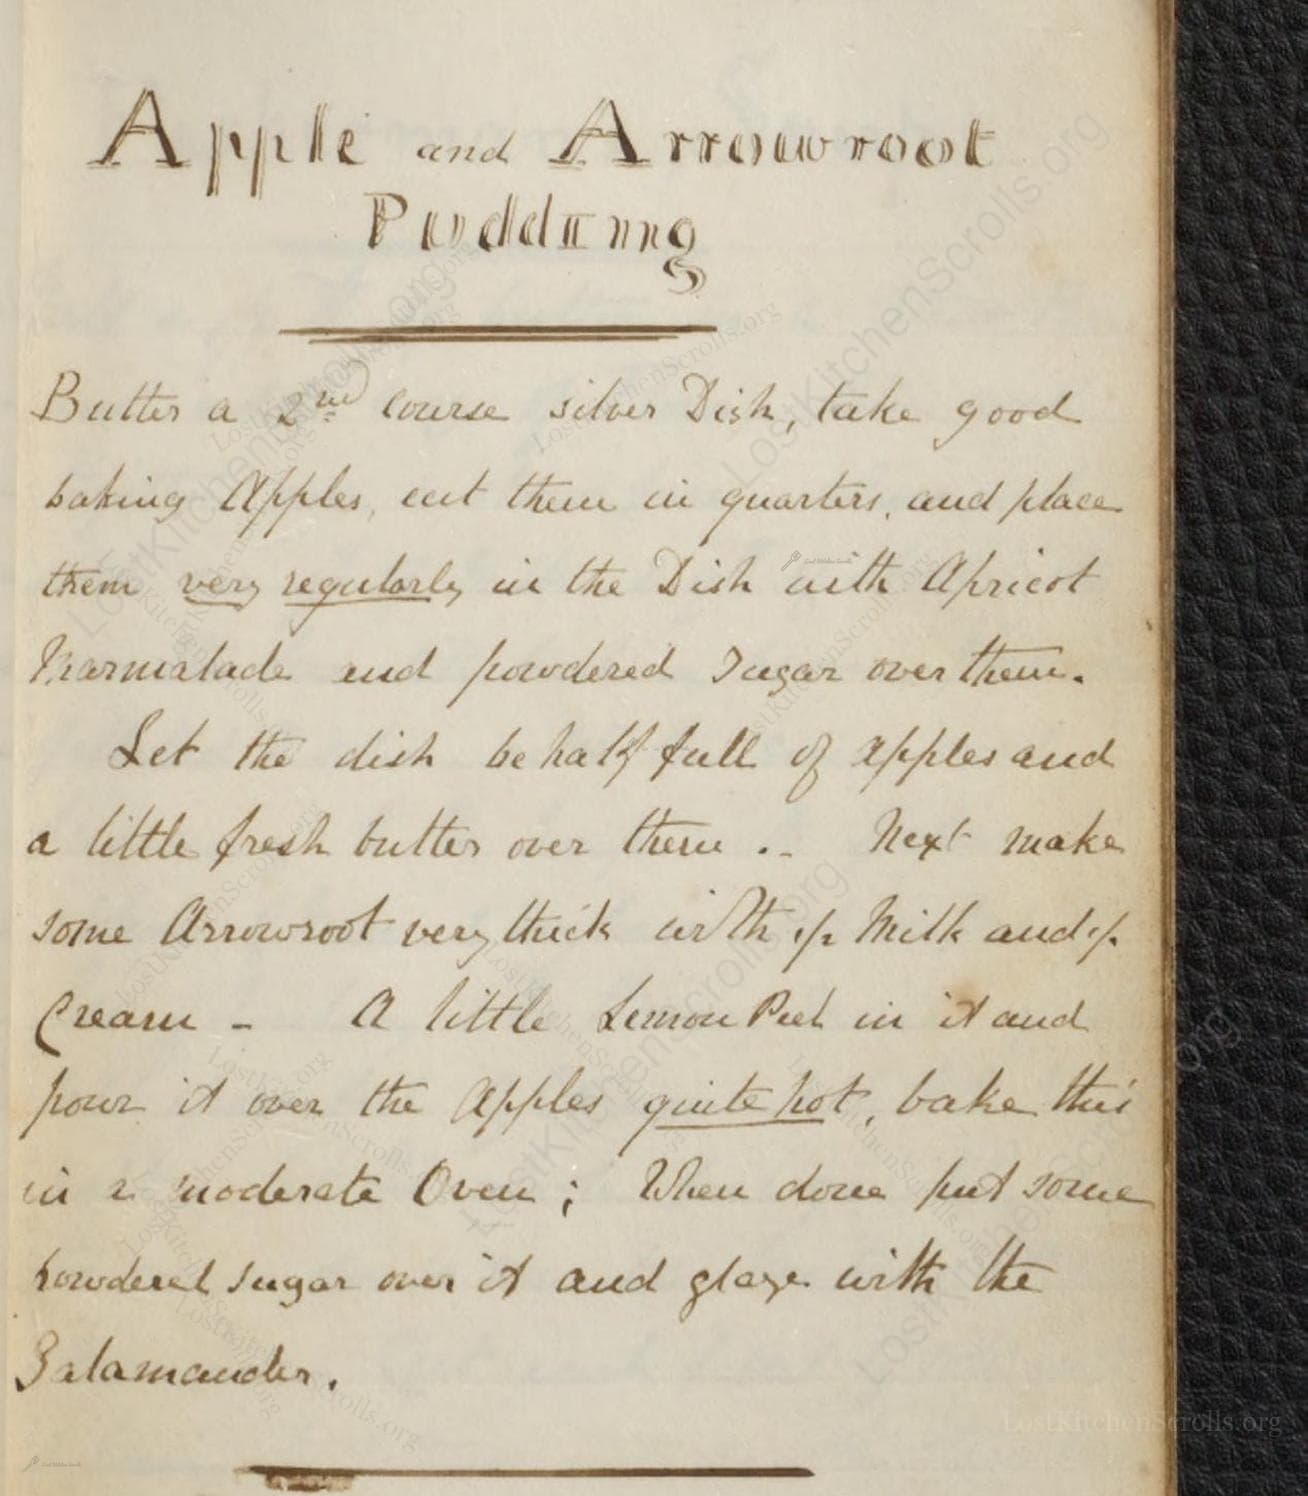 Apple and Arrowroot
Pudding
Butter a 2nd course silver Dish, take good
baking Apples, cut them in quarters, and place
them very regularly in the Dish with Apricot
Marmalade and powdered Sugar over them.
Let the dish be half full of apples and
a little fresh butter over them .- Next make
some Arrowroot very thick with Milk and
Cream - A little Lemon Peel in it and
pour it over the Apples quite hot, bake this
in a moderate Oven ; When done put some
powdered sugar over it and glaze with the
Salamander.
LostKitchenScrolls.org